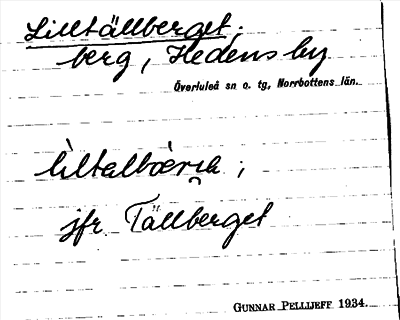 Lilltällberget,
berg, Hedens by
Överluleå sn o. tg, Norrbottens län.
jfr Tällberget
GUNNAR PELLIJEFF 1934.